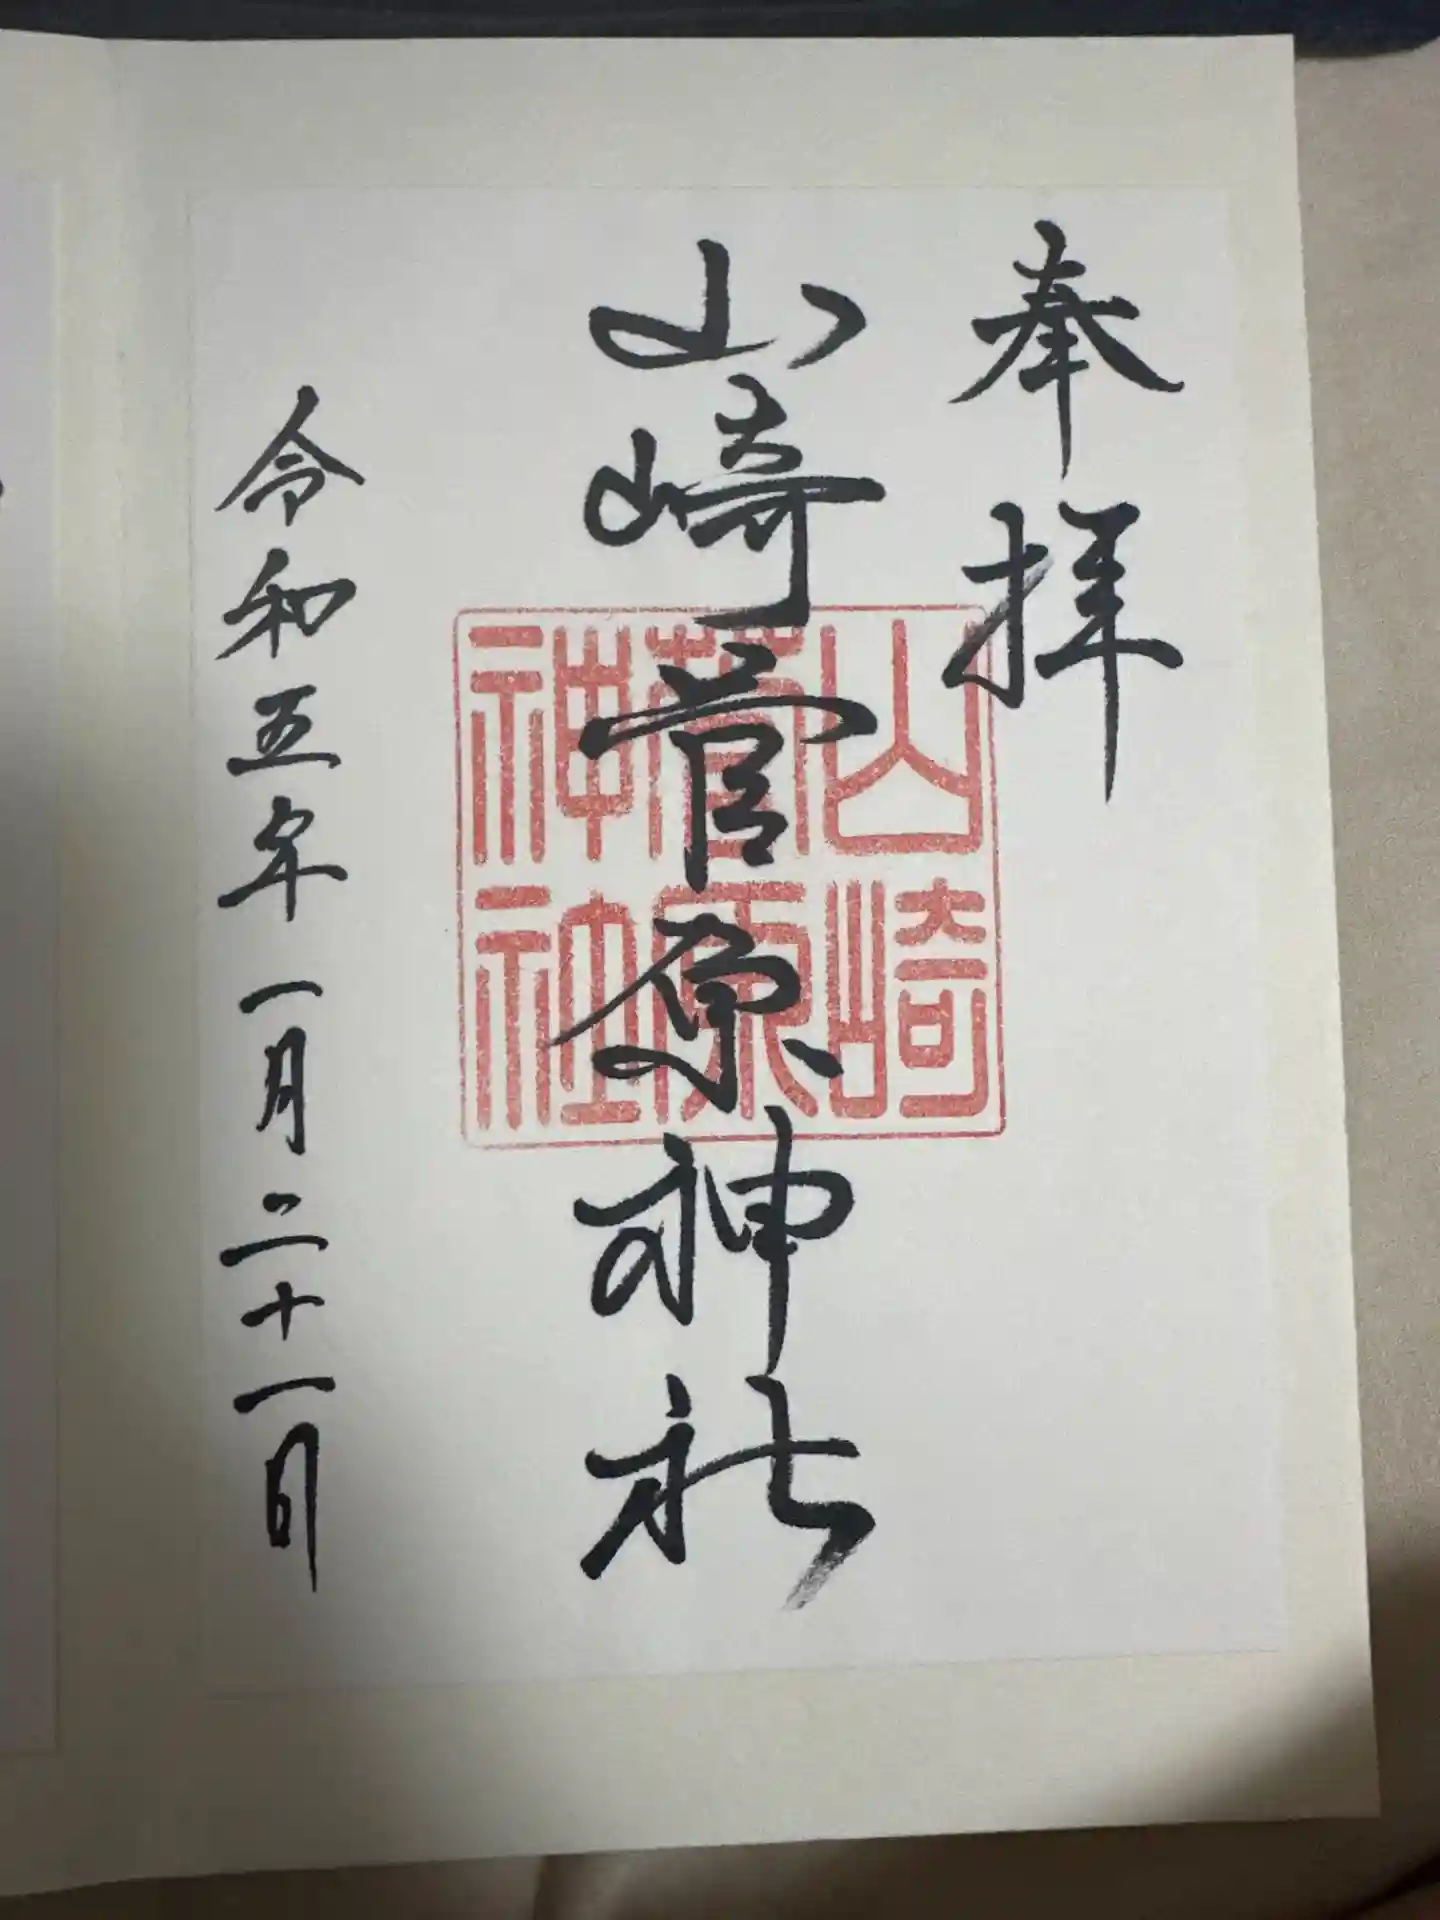 奉拝
山崎菅原神社
山崎
菅原
神社
令和五年一月二十一日